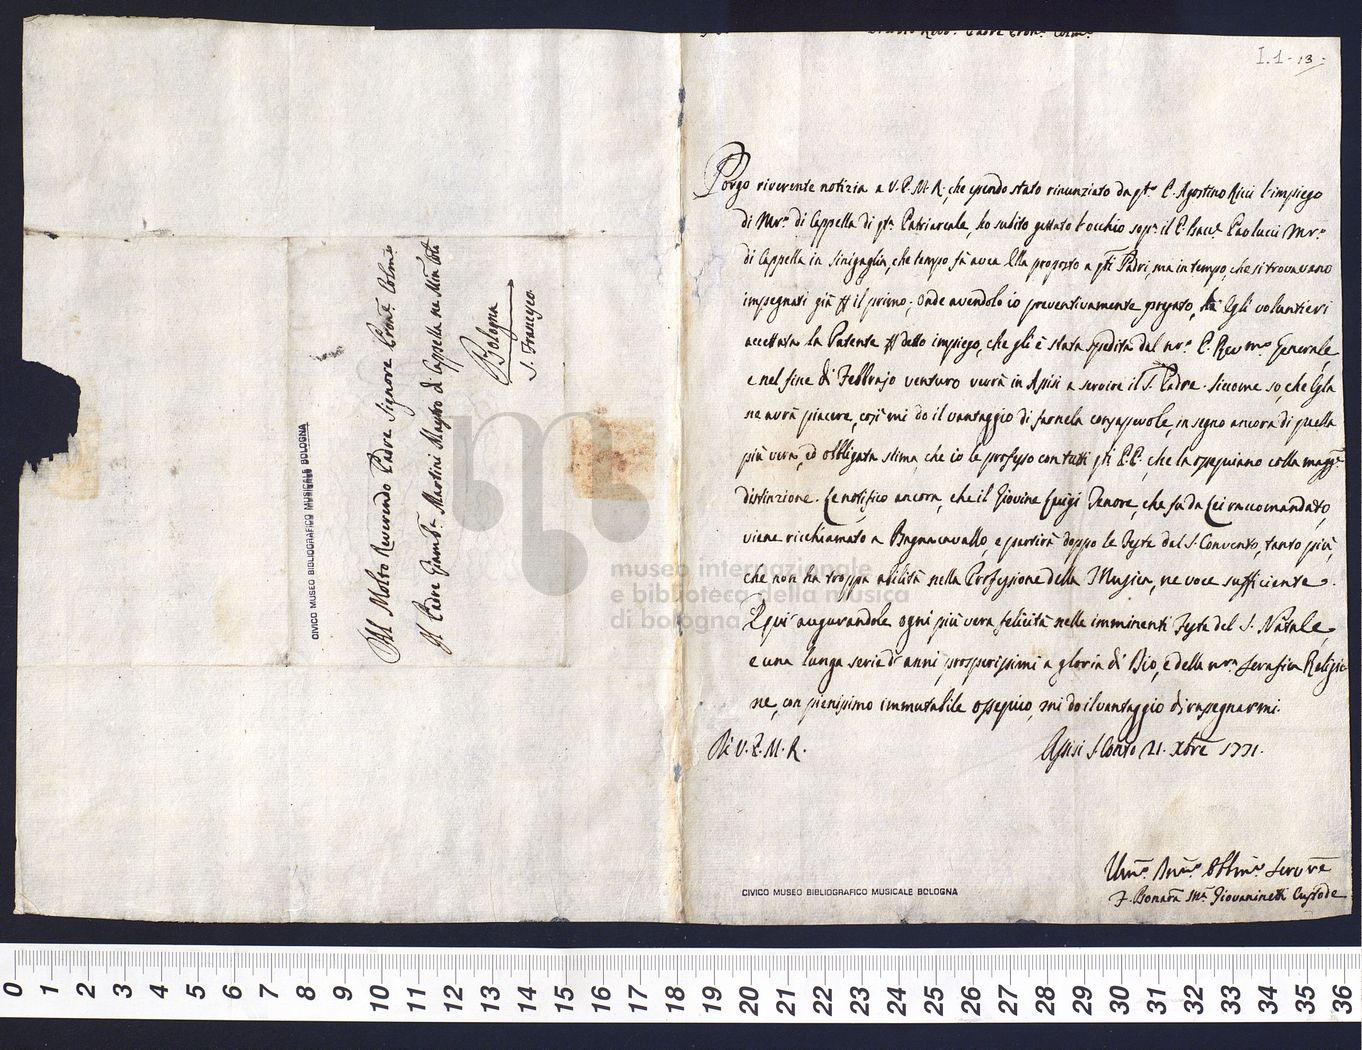 Molto Revdo. Padre Pron. Colmo.
I.1-13-
Porgo riverente notizia a V. P. M. R., che essendo stato rinunziato da qto. P. Agostino Ricci l'impiego
di Mro. di Cappella di qta. Patriarcale, ho subito gettato l'occhio sopra il P. Bacc. Paolucci Mro.
di Cappella in Sinigaglia, che tempo fà avea Ella proposto a qti Padri, ma in tempo, che si trovavano
impegnati già il primo; Onde avendolo io preventivamente pregato, hà Egli volontieri
accettata la Patente detto impiego, che gli è stata spedita dal nro. P. Revmo. Generale,
e nel fine di Febbrajo venturo verrà in Assisi a servire il S. Padre. Siccome so, che Ella
ne avrà piacere, così mi do il vantaggio di farnela consapevole, in segno ancora di quella
più vera, ed obbligata stima, che io le professo con tutti qti P.P. che la ossequiano colla magg.
distinzione. Le notifico ancora, che il Giovine Luigi Tenore, che fu da Lei raccomandato,
viene richiamato a Bagnacavallo, e partirà doppo le Feste dal S. Convento, tanto più,
che non ha troppa abilità nella Professione della Musica, ne voce sufficiente.
E qui augurandole ogni più vera felicità nelle imminenti Feste del S. Natale,
e una lunga serie di anni prosperissimi a gloria di Dio, e della nra Serafica Religio
ne, con pienissimo immutabile ossequio, mi do il vantaggio di rassegnarmi.
Di V. P. M. R.
Assisi S. Conto 21. Xbre 1771.
Umo. Obblmo Servre
F. Bonavra Ma Giovaninetti Custode
CIVICO MUSEO BIBLIOGRAFICO MUSICALE BOLOGNA
Al Molto Reverendo Padre Signore Pron. Colmo
Il Padre Giambta. Martini Maestro di Cappella ne Min. Conti
Bologna
S. Francesco
CIVICO MUSEO BIBLIOGRAFICO MUSICALE BOLOGNA
museo internazionale
e biblioteca della musica
di bologna
0 1 2 3 4 5 6 7 8 9 10 11 12 13 14 15 16 17 18 19 20 21 22 23 24 25 26 27 28 29 30 31 32 33 34 35 36